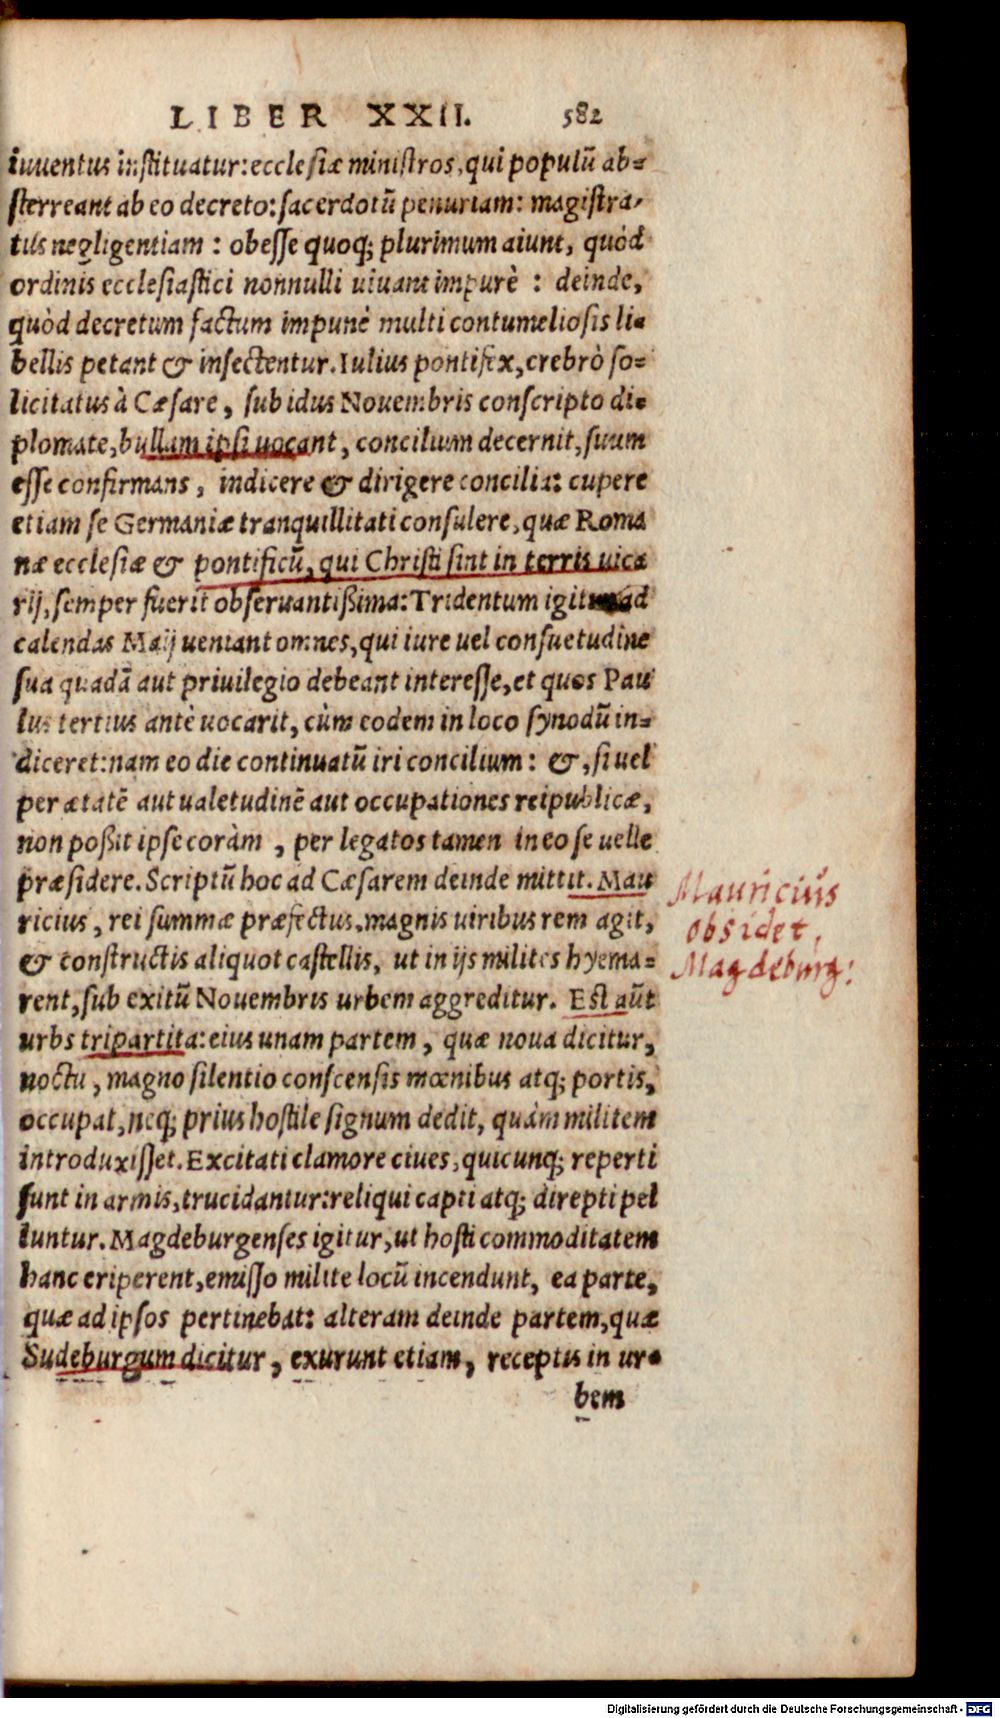 LIBER XXII. 582
iuuentus instituatur: ecclesiæ ministros, qui populũ ab=
sterreant ab eo decreto: sacerdotũ penuriam: magistra=
tus negligentiam : obesse quoq; plurimum aiunt, quòd
ordinis ecclesiastici nonnulli uiuant impurè : deinde,
quòd decretum factum impunè multi contumeliosis li=
bellis petant & insectentur. Iulius pontifex, crebrò so=
licitatus à Cæsare, sub idus Nouembris conscripto di=
plomate, bullam ipsi uocant, concilium decernit, suum
esse confirmans, indicere & dirigere concilia: cupere
etiam se Germaniæ tranquillitati consulere, quæ Roma
næ ecclesiæ & pontificũ, qui Christi sint in terris uica
rij, semper fuerit obseruantißima: Tridentum igitur ad
calendas Maij ueniant omnes, qui iure uel consuetudine
sua quadã aut priuilegio debeant interesse, et quos Pau
lus tertius antè uocarit, cùm eodem in loco synodũ in=
diceret: nam eo die continuatũ iri concilium: &, si uel
per ætatẽ aut ualetudinẽ aut occupationes reipublicæ,
non poßit ipse coràm, per legatos tamen in eo se uelle
præsidere. Scriptũ hoc ad Cæsarem deinde mittit. Mau
ricius, rei summæ præfectus, magnis uiribus rem agit,
& constructis aliquot castellis, ut in ijs milites hyema=
rent, sub exitũ Nouembris urbem aggreditur. Est aũt
urbs tripartita: eius unam partem, quæ noua dicitur,
noctu, magno silentio conscensis mœnibus atq; portis,
occupat, neq; prius hostile signum dedit, quàm militem
introduxisset. Excitati clamore ciues, quicunq; reperti
sunt in armis, trucidantur: reliqui capti atq; direpti pel
luntur. Magdeburgenses igitur, ut hosti commoditatem
hanc eriperent, emisso milite locũ incendunt, ea parte,
quæ ad ipsos pertinebat: alteram deinde partem, quæ
Sudeburgum dicitur, exurunt etiam, receptis in ur=
bem
Mauricius
obsidet,
Magdeburg:
Digitalisierung gefördert durch die Deutsche Forschungsgemeinschaft - DFG